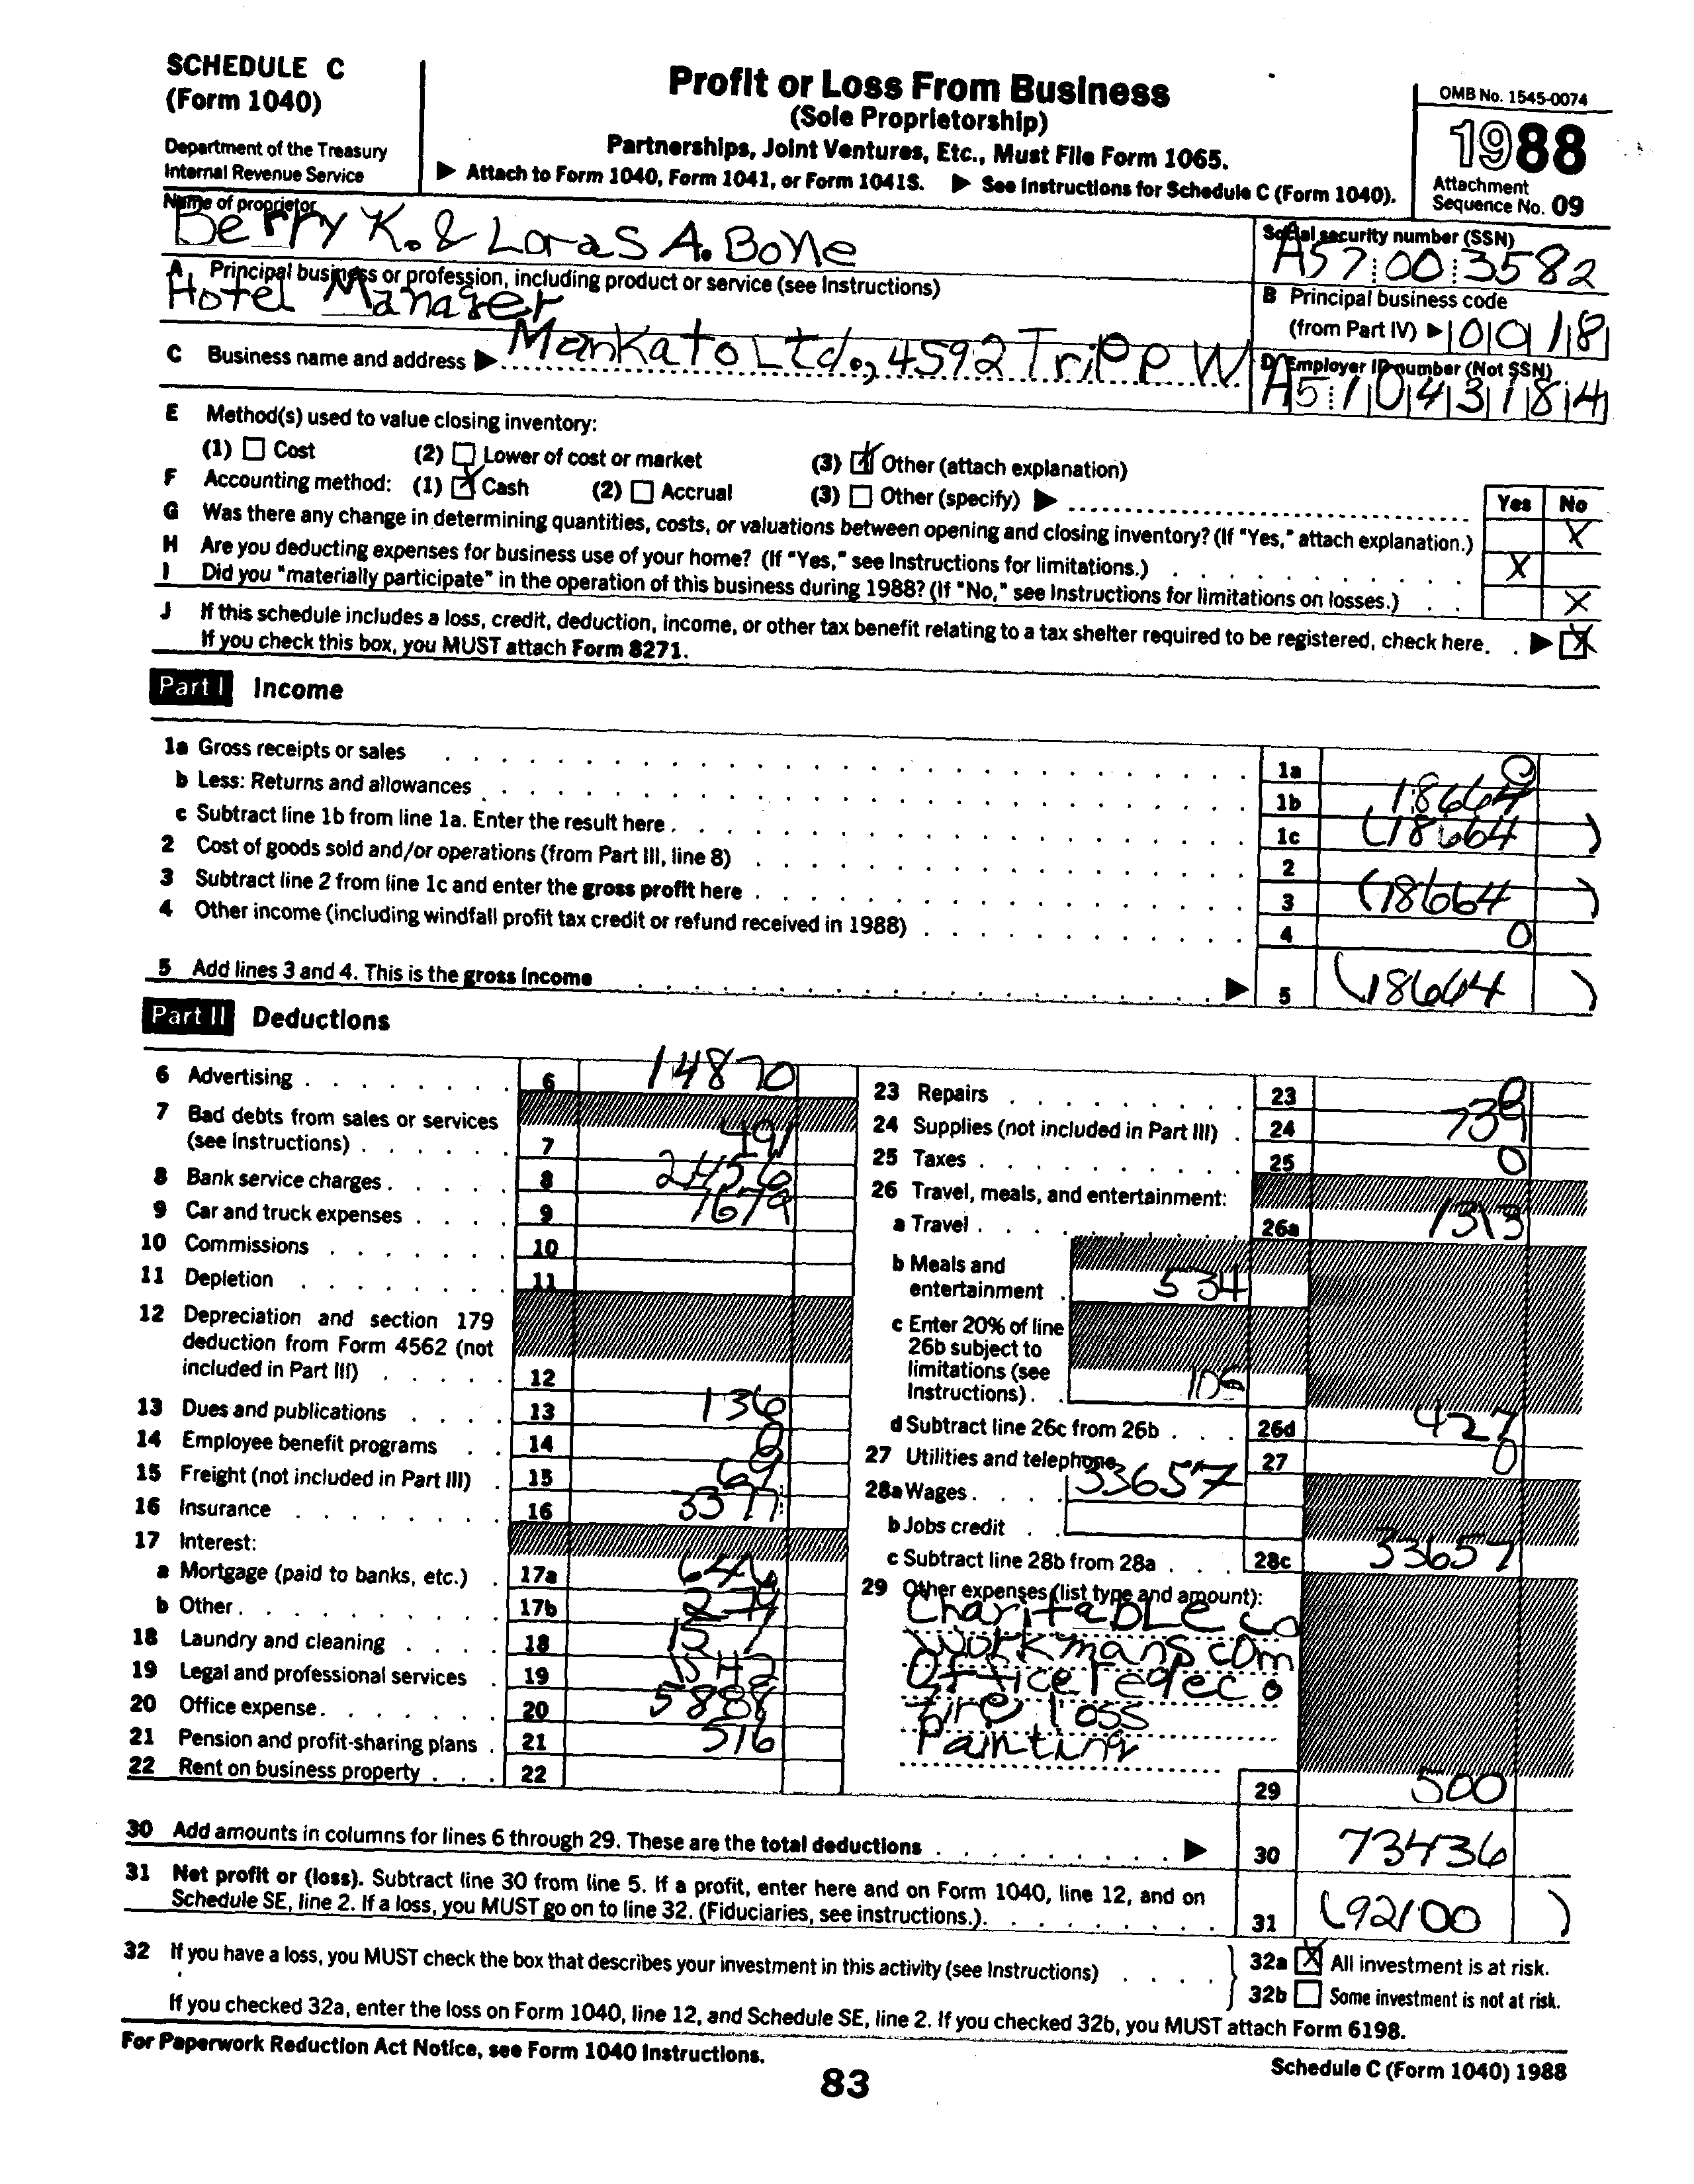 SCHEDULE C
(Form 1040)
Department of the Treasury
Internal Revenue Service
Profit or Loss From Business
(Sole Proprietorship)
Partnerships, Joint Ventures, Etc., Must File Form 1065.
▶ Attach to Form 1040, Form 1041, or Form 1041S. ▶ See Instructions for Schedule C (Form 1040).
OMB No. 1545-0074
1988
Attachment
Sequence No. 09
Name of proprietor
Berry K. & Loras A. Bone
Social security number (SSN)
A57 00 3582
A Principal business or profession, including product or service (see Instructions)
Hotel Manager
B Principal business code
(from Part IV) ▶ 0018
C Business name and address ▶ Mankato Ltd., 4592 Tripp W
D Employer ID number (Not SSN)
A51043184
E Method(s) used to value closing inventory:
(1) ☐ Cost (2) ☐ Lower of cost or market (3) ☒ Other (attach explanation)
F Accounting method: (1) ☒ Cash (2) ☐ Accrual (3) ☐ Other (specify) ▶
Yes No
G Was there any change in determining quantities, costs, or valuations between opening and closing inventory? (If "Yes," attach explanation.) X
H Are you deducting expenses for business use of your home? (If "Yes," see Instructions for limitations.) X
I Did you "materially participate" in the operation of this business during 1988? (If "No," see Instructions for limitations on losses.) X
J If this schedule includes a loss, credit, deduction, income, or other tax benefit relating to a tax shelter required to be registered, check here. ▶ ☒
If you check this box, you MUST attach Form 8271.
Part I Income
1a Gross receipts or sales 1a 0
b Less: Returns and allowances 1b 18664
c Subtract line 1b from line 1a. Enter the result here 1c (18664)
2 Cost of goods sold and/or operations (from Part III, line 8) 2
3 Subtract line 2 from line 1c and enter the gross profit here 3 (18664)
4 Other income (including windfall profit tax credit or refund received in 1988) 4 0
5 Add lines 3 and 4. This is the gross income ▶ 5 (18664)
Part II Deductions
6 Advertising 6 14870
7 Bad debts from sales or services
(see Instructions) 7 491
8 Bank service charges 8 2456
9 Car and truck expenses 9 7679
10 Commissions 10
11 Depletion 11
12 Depreciation and section 179
deduction from Form 4562 (not
included in Part III) 12
13 Dues and publications 13 136
14 Employee benefit programs 14 0
15 Freight (not included in Part III) 15 69
16 Insurance 16
17 Interest:
a Mortgage (paid to banks, etc.) 17a 646
b Other 17b
18 Laundry and cleaning 18
19 Legal and professional services 19
20 Office expense 20 5888
21 Pension and profit-sharing plans 21 516
22 Rent on business property 22
23 Repairs 23 0
24 Supplies (not included in Part III) 24 739
25 Taxes 25 0
26 Travel, meals, and entertainment:
a Travel 26a 1313
b Meals and
entertainment 534
c Enter 20% of line
26b subject to
limitations (see
Instructions)
d Subtract line 26c from 26b 26d 427
27 Utilities and telephone 27 0
28a Wages 33657
b Jobs credit
c Subtract line 28b from 28a 28c 33657
29 Other expenses (list type and amount):
Charitable co
Workmans com
Office redeco
Fire loss
Painting
29 500
30 Add amounts in columns for lines 6 through 29. These are the total deductions ▶ 30 73436
31 Net profit or (loss). Subtract line 30 from line 5. If a profit, enter here and on Form 1040, line 12, and on
Schedule SE, line 2. If a loss, you MUST go on to line 32. (Fiduciaries, see instructions.) 31 (92100)
32 If you have a loss, you MUST check the box that describes your investment in this activity (see Instructions)
32a ☒ All investment is at risk.
32b ☐ Some investment is not at risk.
If you checked 32a, enter the loss on Form 1040, line 12, and Schedule SE, line 2. If you checked 32b, you MUST attach Form 6198.
For Paperwork Reduction Act Notice, see Form 1040 Instructions.
Schedule C (Form 1040) 1988
83